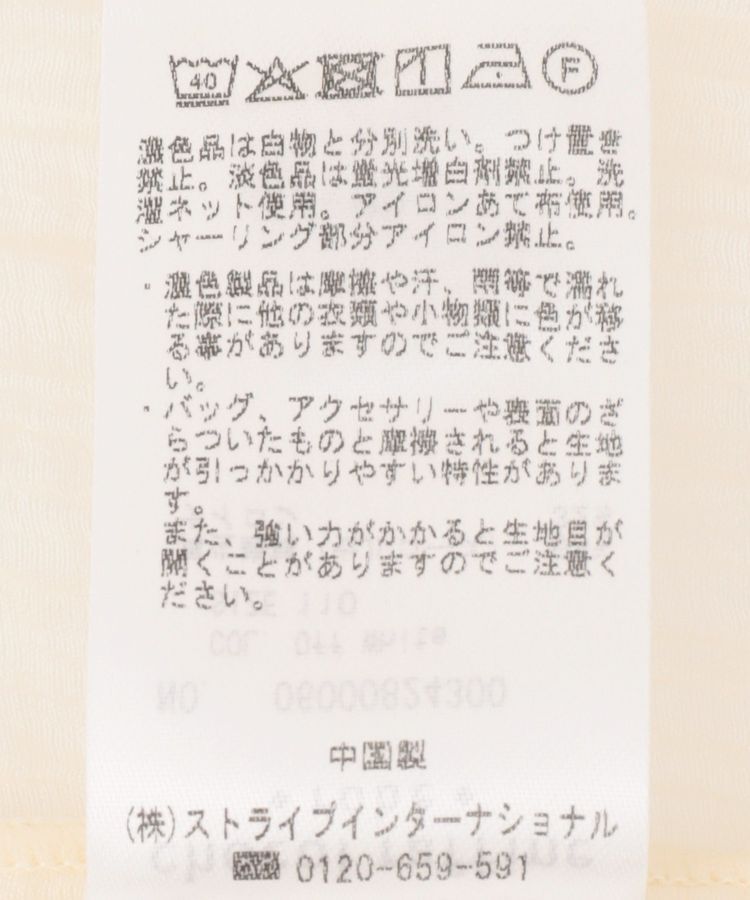 40 P
濃色品は白物と分別洗い。つけ置き
禁止。淡色品は蛍光増白剤禁止。洗
濯ネット使用。アイロンあて布使用。
シャーリング部分アイロン禁止。
・濃色製品は摩擦や汗、雨等で濡れ
た際に他の衣類や小物類に色が移
る事がありますのでご注意くださ
い。
・バッグ、アクセサリーや表面のざ
らついたものと摩擦されると生地
が引っかかりやすい特性がありま
す。
また、強い力がかかると生地目が
開くことがありますのでご注意く
ださい。
SIZE 110
COL. Off White
NO. 06000824300
中国製
(株)ストライプインターナショナル
0120-659-591